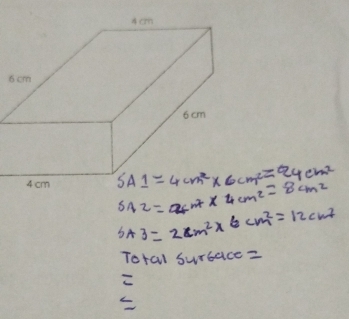 4 cm
6 cm
6 cm
4 cm
SA1 = 4cm² x 6cm² = 24cm²
SA2 = 2cm² x 4cm² = 8cm²
SA3 = 2cm² x 6cm² = 12cm²
Total Surface =
=
=